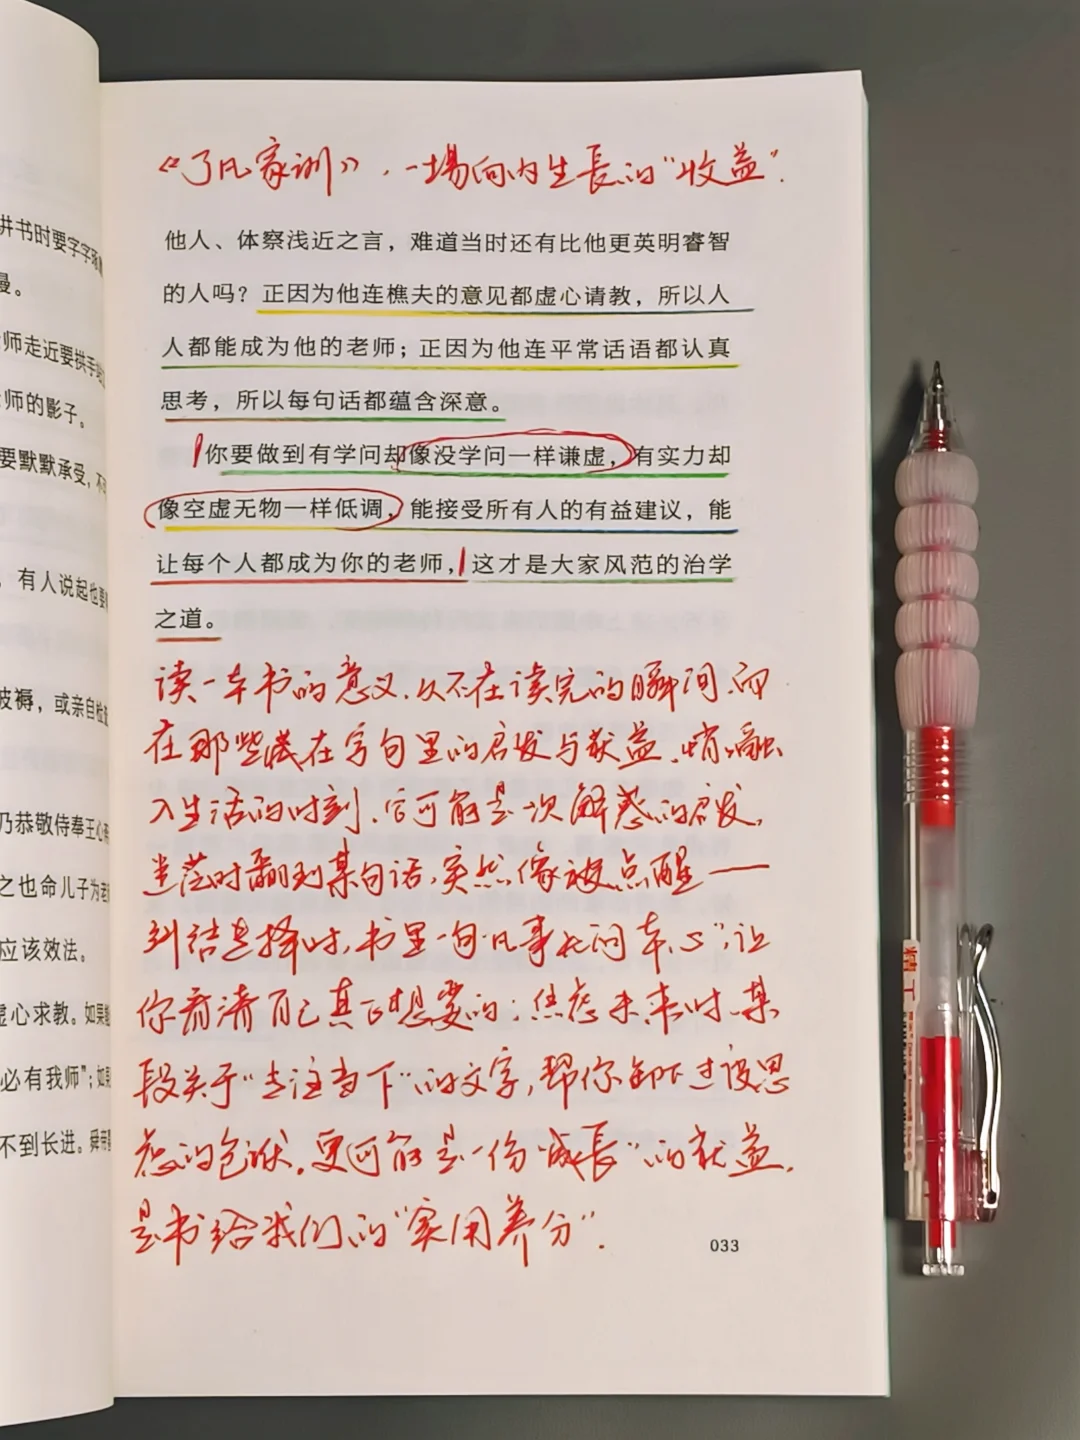 讲书时要字字
慢。
师走近要拱手
师的影子。
要默默承受,不
,有人说起也要
被褥,或亲自检查
乃恭敬侍奉王心斋
之也命儿子为老
应该效法。
虚心求教。如果
必有我师”;如果
不到长进。舜帝
《了凡家训》,一場向内生長的“收益”.
他人、体察浅近之言,难道当时还有比他更英明睿智
的人吗?正因为他连樵夫的意见都虚心请教,所以人
人都能成为他的老师;正因为他连平常话语都认真
思考,所以每句话都蕴含深意。
你要做到有学问却像没学问一样谦虚,有实力却
像空虚无物一样低调,能接受所有人的有益建议,能
让每个人都成为你的老师,这才是大家风范的治学
之道。
读一本书的意义,从不在读完的瞬间,而
在那些藏在字句里的启发与获益,悄融
入生活的时刻,它可能是一次解惑的启发,
迷茫时翻到某句话,突然像被点醒——
纠结选择时,书里一句“凡事太问本心”,让
你看清自己真正想要的;焦虑未来时,某
段关于“专注当下”的文字,帮你卸下过度思
虑的包袱,更可能是一份“成長”的获益,
是书给我们的“实用养分”.
033
精工